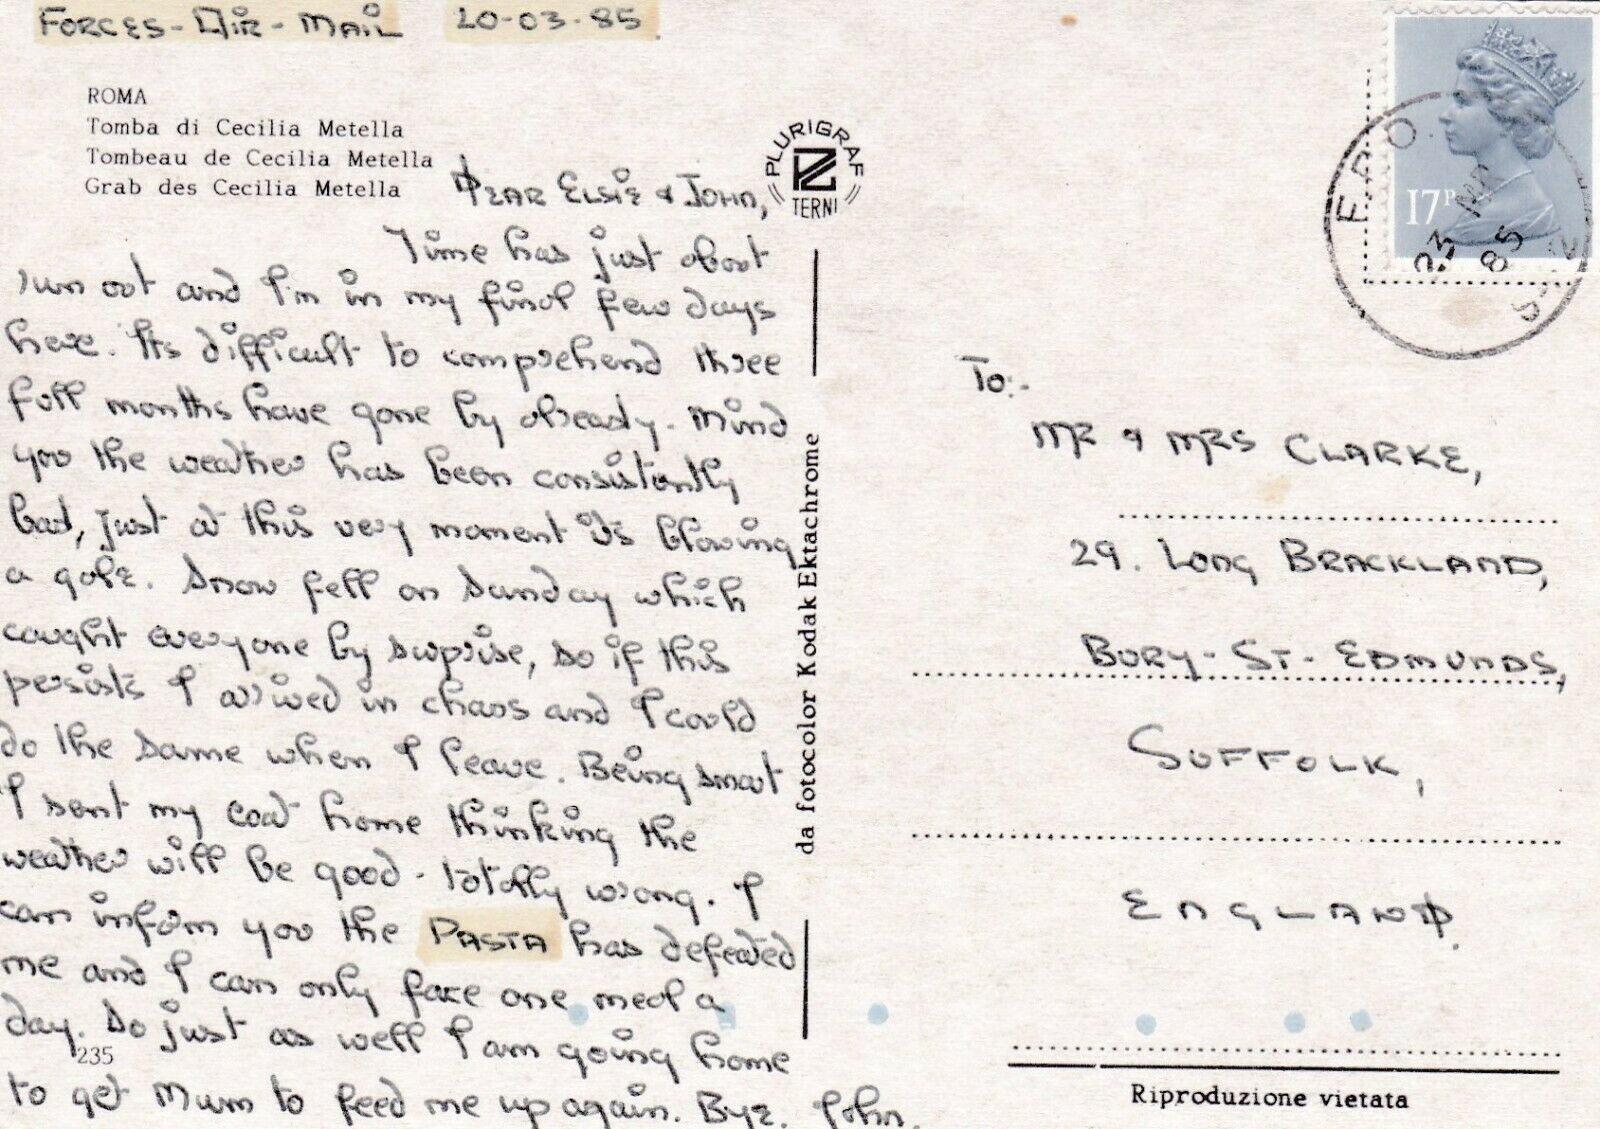 FORCES-AIR-MAIL 20-03-85
ROMA
Tomba di Cecilia Metella
Tombeau de Cecilia Metella
Grab des Cecilia Metella
PLURIGRAF
TERNI
DEAR ELSIE & JOHN,
Time has just about
run out and I'm in my final few days
here. Its difficult to comprehend three
full months have gone by already. Mind
you the weather has been consistently
bad, just at this very moment it's blowing
a gale. Snow fell on Sunday which
caught everyone by surprise, so if this
persists I arrived in chaos and I could
do the same when I leave. Being smart
I sent my coat home thinking the
weather will be good - totally wrong. I
can inform you the PASTA has defeated
me and I can only face one meal a
day. So just as well I am going home
to get Mum to feed me up again. BYE. John.
235
da fotocolor Kodak Ektachrome
17P
F.P.O.
23 MR
85
To:-
MR & MRS CLARKE,
29. LONG BRACKLAND,
BURY-ST-EDMUNDS,
SUFFOLK,
ENGLAND.
Riproduzione vietata